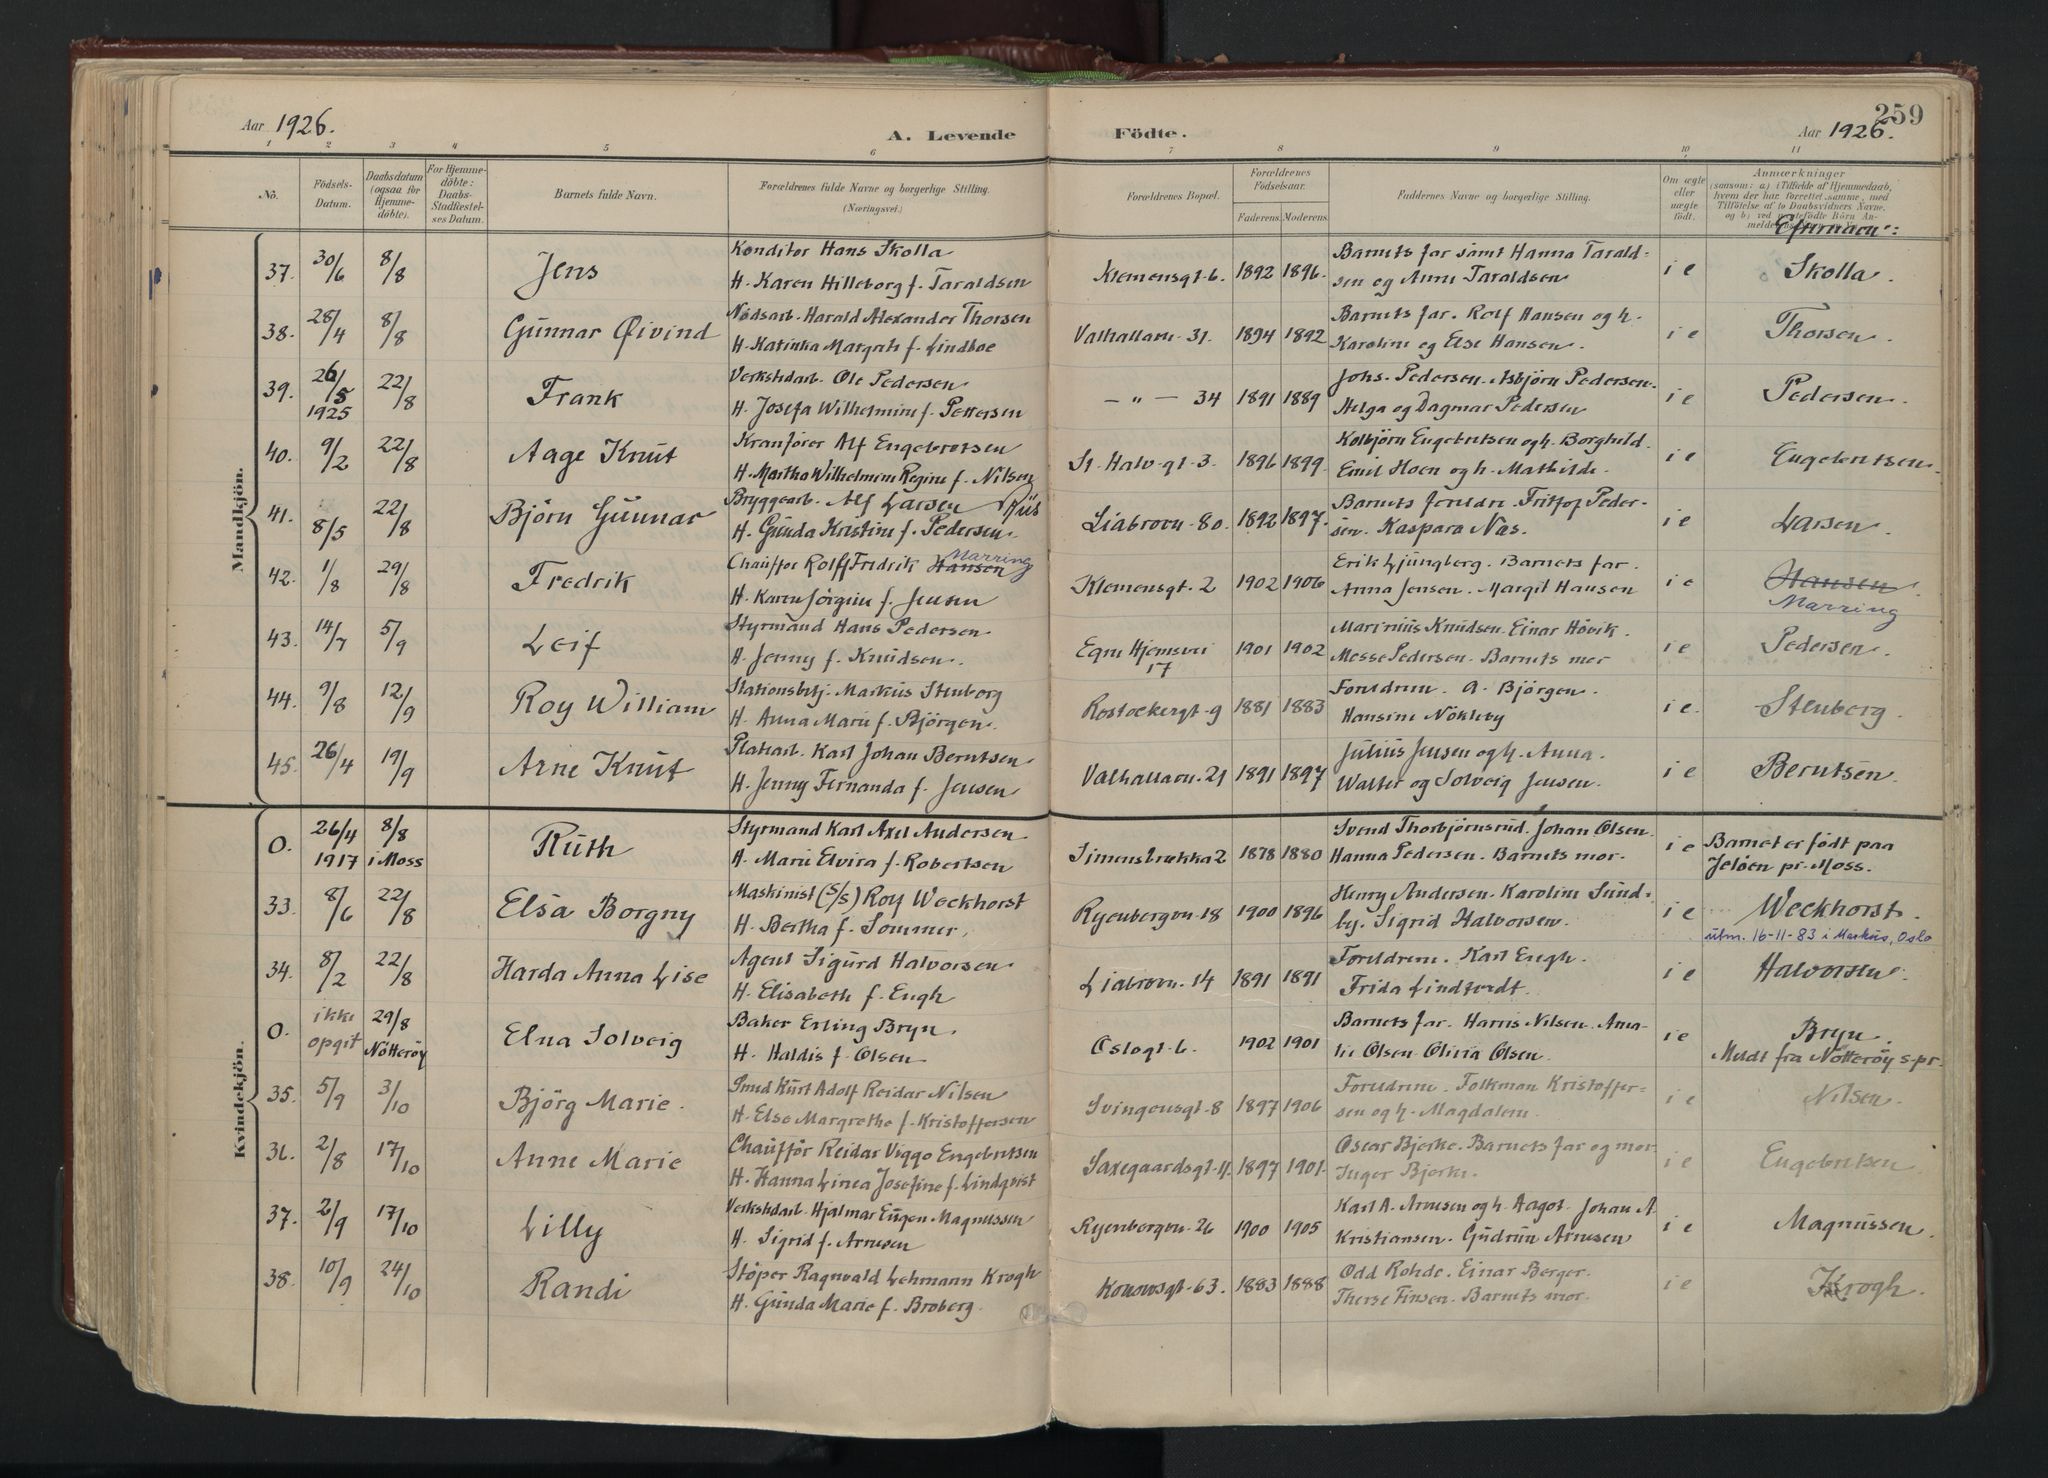 259
Aar 1926. A. Levende Födte. Aar 1926.
1 2 3 4 5 6 7 8 9 10 11
No. Födsels-Datum. Daabsdatum (ogsaa for Hjemmedöbte). For Hjemmedöbte: Daabs-Stadfæstelses Datum. Barnets fulde Navn. Forældrenes fulde Navne og borgerlige Stilling. (Næringsvei.) Forældrenes Bopæl. Forældrenes Födselsaar. Faderens. Moderens. Faddernes Navne og borgerlige Stilling. Om ægte eller uægte födt. Anmærkninger (saasom: a) i Tilfælde af Hjemmedaab, hvem der har forrettet samme, med Tilföielse af to Daabsvidners Navne,
Efternavn:
Mandkjön.
37. 30/6 8/8 Jens Konditor Hans Skolla Klemensgt. 6. 1892 1896. Barnets far samt Hanna Tarald- i e Skolla.
H. Karen Hilleborg f. Taraldsen sen og Anne Taraldsen
38. 28/4 8/8 Gunnar Øivind Nødsarb. Harald Alexander Thorsen Valhallavn. 31. 1894 1892 Barnets far. Rolf Hansen og h. i e Thorsen.
H. Katinka Margrete f. Lindboe Karoline og Else Hansen.
39. 26/5 1925 22/8 Frank Verkstedarb. Ole Pedersen — " — 34 1891 1889 Johs. Pedersen. Asbjörn Pedersen. i e Pedersen.
H. Josefa Wilhelmine f. Pettersen Helga og Dagmar Pedersen
40. 9/2 22/8 Aage Knut Kranfører Alf Engebretsen St. Halv. gt. 3. 1896 1899. Kolbjörn Engebretsen og h. Borghild. i e Engebretsen.
H. Martha Wilhelmine Regine f. Nilsen Emil Hoen og h. Mathilde.
41. 8/5 22/8 Björn Gunnar Bryggearb. Alf Larsen Riis Liabrovn. 80. 1892 1897. Barnets foreldre. Fritjof Peder- i e Larsen.
H. Gunda Kristine f. Pedersen. sen. Kaspara Nas.
42. 1/8 29/8 Fredrik Chauffør Rolf Fredrik Hansen Marring Klemensgt. 2 1902 1906 Erik Ljungberg. Barnets far. i e Hansen.
H. Karen Jörgine f. Jensen Anna Jensen. Margit Hansen Marring
43. 14/7 5/9 Leif Styrmand Hans Pedersen. Egne Hjemsvei 17 1901 1902 Marinius Knudsen. Einar Hövik. i e Pedersen.
H. Jenny f. Knudsen. Messe Pedersen. Barnets mor
44. 9/8 12/9 Roy William Stationsbetj. Markus Stenberg Rostockergt. 9 1881 1883 Foreldrene. A. Björgen. i e. Stenberg.
H. Anna Marie f. Björgen. Hansine Nökleby
45. 26/4 19/9 Arne Knut Platearb. Karl Johan Berntsen. Valhallavn. 21 1891 1897 Julius Jensen og h. Anna. i e Berntsen.
H. Jenny Fernanda f. Jensen Walter og Solveig Jensen.
Kvindekjön.
0. 26/4 1917 8/8 i Moss Ruth Styrmand Karl Axel Andersen Simensbrækka 2 1878 1880 Svend Thorbjörnsrud. Johan Olsen. i e Barnet er født paa
H. Marie Elvira f. Robertsen Hanna Pedersen. Barnets mor. Jelöen pr. Moss.
33. 8/6 22/8 Elsa Borgny Maskinist (S/S) Roy Weckhorst Ryenbergvn. 18 1900 1896 Henry Andersen. Karoline Sund- i e Weckhorst.
H. Bertha f. Sommer. by. Sigrid Halvorsen. utm. 16-11-83 i Markus, Oslo
34. 8/2 22/8 Harda Anna Lise Agent Sigurd Halvorsen. Liabrovn. 14 1891 1891 Foreldrene. Karl Engh. i e Halvorsen.
H. Elisabeth f. Engh Frida Lindtvedt.
0. ikke opgit 29/8 Nötteröy Elna Solveig Baker Erling Bryn. Oslogt. 6. 1902 1901 Barnets far. Harris Nilsen. Ama- i e Bryn.
H. Haldis f. Olsen. lie Olsen. Olivia Olsen. Meldt fra Nötteröy s.pr.
35. 5/9 3/10 Björg Marie. Smed Kurt Adolf Reidar Nilsen Svingensgt. 8 1897 1906 Foreldrene. Folkman Kristoffer- i e Nilsen.
H. Else Margrethe f. Kristoffersen sen og h. Magdalene.
36. 2/8 17/10 Anne Marie Chauffør Reidar Viggo Engebretsen Saxegaardsgt. 11. 1897 1901. Oscar Bjerke. Barnets far og mor. i e Engebretsen.
H. Hanna Linea Josefine f. Lindqvist Inger Bjerke.
37. 2/9 17/10 Lilly Verkstedarb. Hjalmar Eugen Magnussen Ryenbergvn. 26 1900 1905 Karl A. Arnesen og h. Aagot. Johan A. i e Magnussen.
H. Sigrid f. Arnesen Kristiansen. Gudrun Arnesen
38. 10/9 24/10 Randi Støper Ragnvald Lehmann Krogh Konowsgt. 63. 1883 1888 Odd Rohde. Einar Berger. i e Krogh.
H. Gunda Marie f. Broberg. Therse Finsen. Barnets mor.